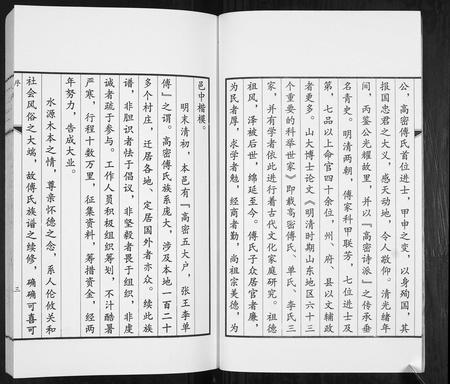 公，高密傅氏首位进士，甲申之变，以身殉国，其
报国忠君之大义，感天动地，令人敬仰。清光绪年
间，两鉴公光耀故里，并以『高密诗派』之传承垂
名青史。明清两朝，傅家科甲联芳，七位进士及
第，七品以上命官四十余位，州、府、县以文辅政
者更多。山大博士论文《明清时期山东地区六十三
个重要的科举世家》即载高密傅氏、单氏、李氏三
家，并有学者依此进行着古代文化家庭研究。祖德
祖风，泽被后世，绵延至今。傅氏子众居官者廉，
为民者厚，求学者勉，经商者勤，尚祖宗美德，为
邑中楷模。
明末清初，本邑有『高密五大户，张王李单
傅』之谓。高密傅氏族系庞大，涉及本地一百二十
多个村庄，迁居各地、定居国外者亦众。续此族
谱，非胆识者怯于倡议，非坚毅者畏于组织，非虔
诚者疏于参与。工作人员积极组织筹划，不计酷暑
严寒，行程十数万里，征集资料，筹措资金，经两
年努力，告成大业。
水源木本之情，尊亲怀德之念，系人伦攸关和
社会风俗之大端，故傅氏族谱之续修，确确可喜可
序
三